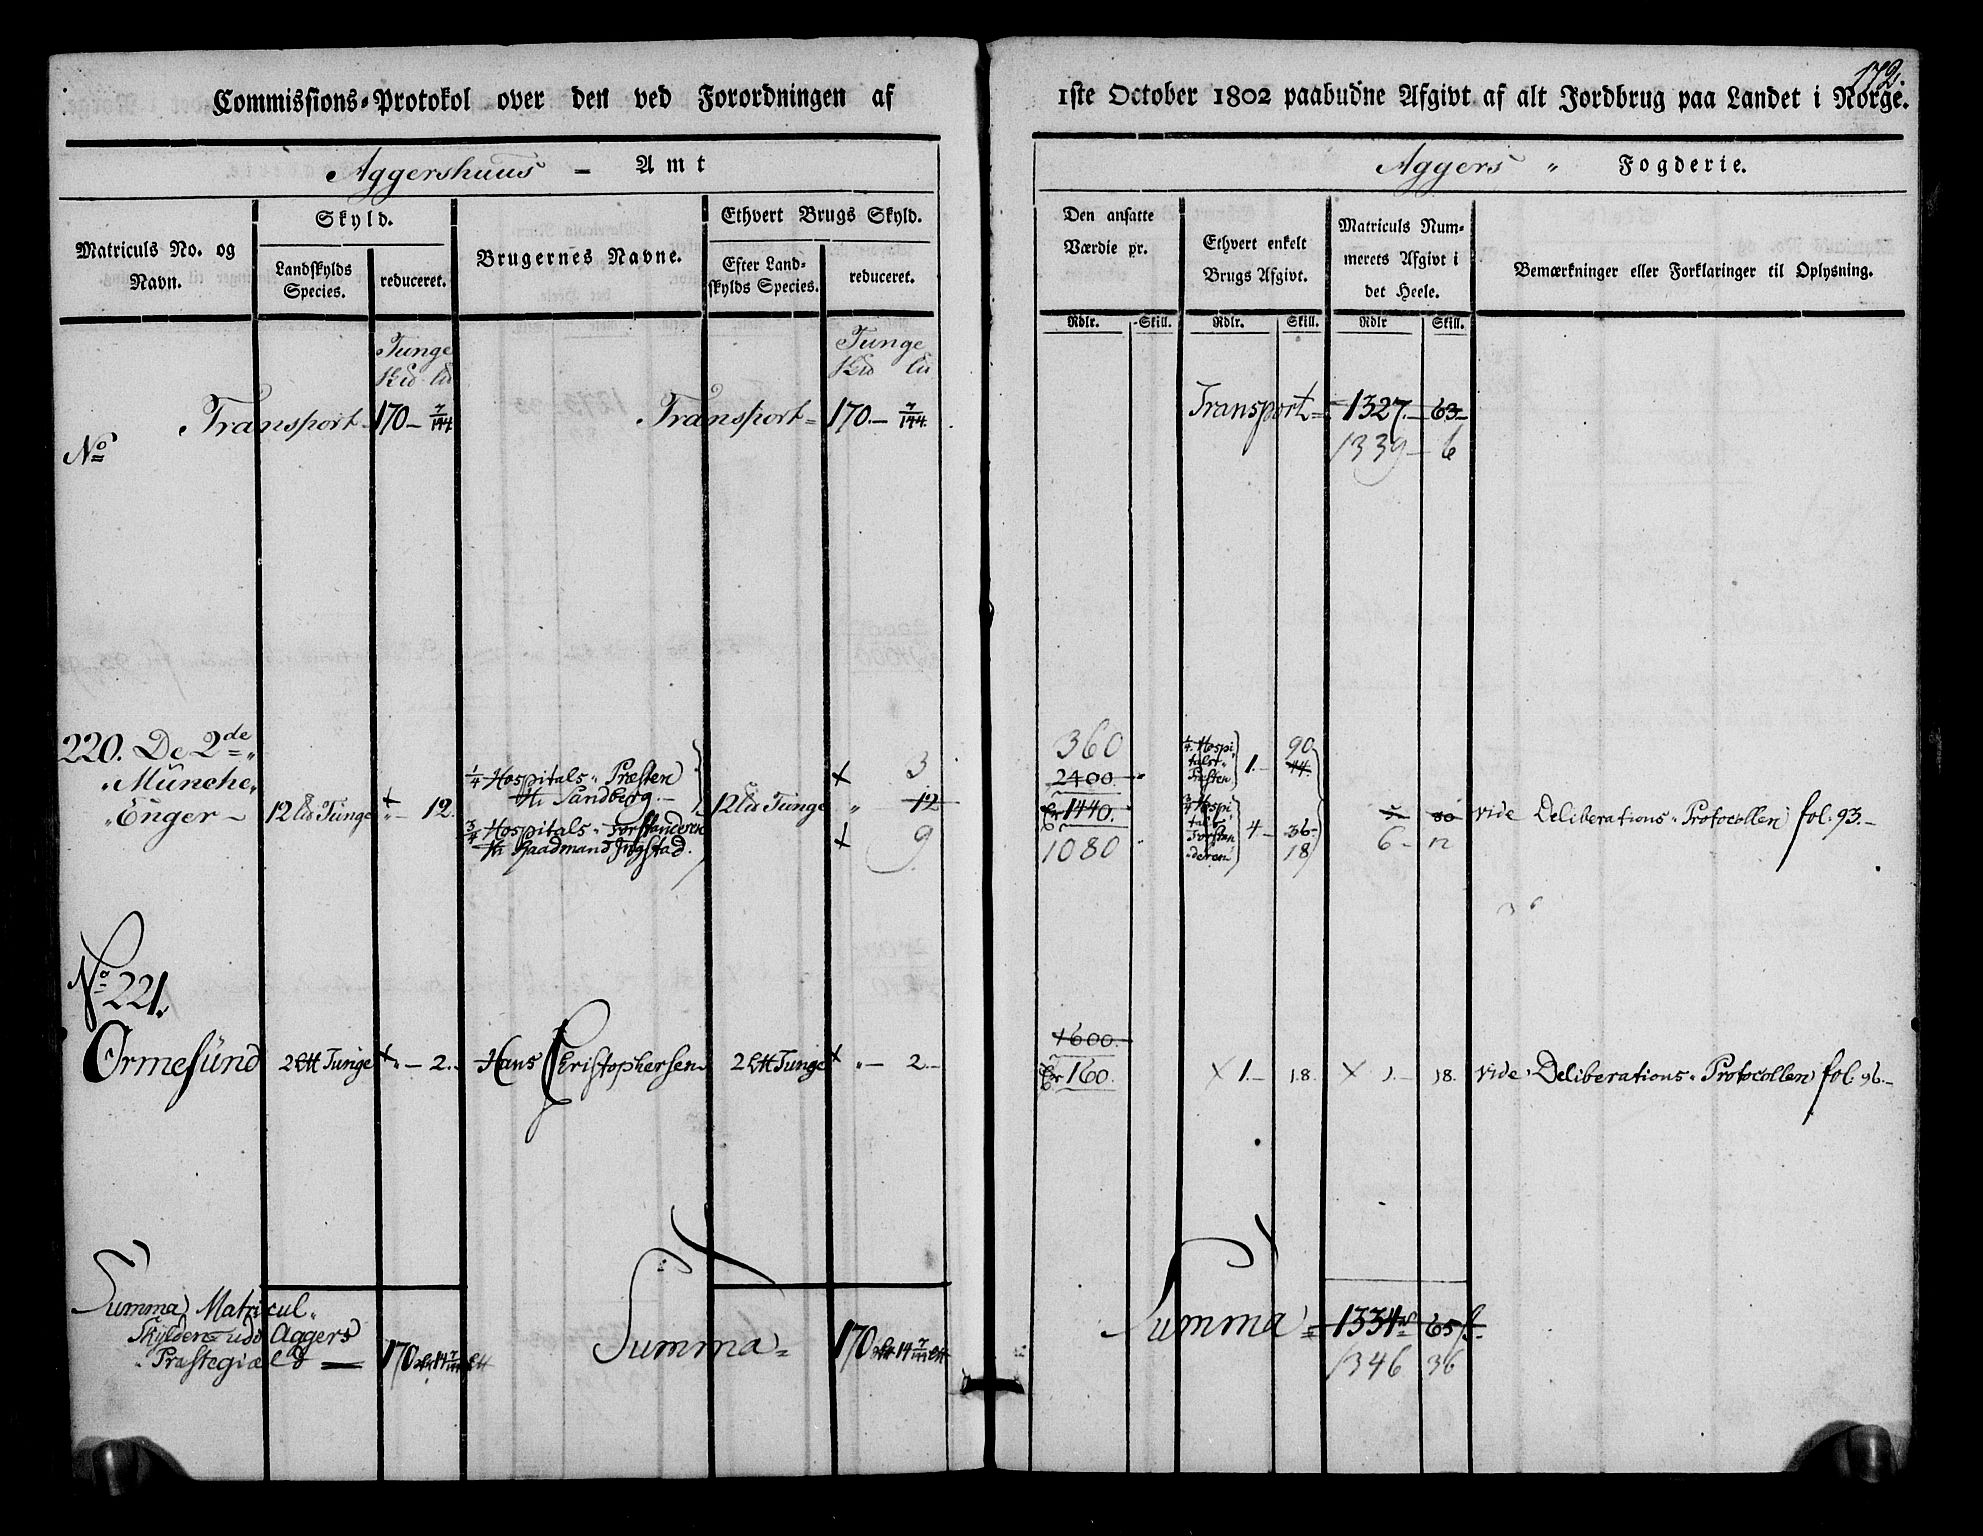 Commissions-Protokol over den ved Forordningen af
1ste October 1802 paabudne Afgivt af alt Jordbrug paa Landet i Norge.
172.
Aggershuus - Amt
Aggers " Fogderie.
Matriculs No. og
Navn.
Skyld.
Landskylds
Species.
reduceret.
Brugernes Navne.
Ethvert Brugs Skyld.
Efter Land-
skylds Species.
reduceret.
Den ansatte
Værdie pr.
Ethvert enkelt
Brugs Afgivt.
Matriculs Num-
merets Afgivt i
det Heele.
Bemærkninger eller Forklaringer til Oplysning.
Rdlr. Skill. Rdlr. Skill. Rdlr Skill.
Tunge
Tunge
Transport - 170 - 7/144
Transport - 170. - 7/144
Transport = 1327. - 63 -
1339 - 6
No
220. De 2de
Münche
Enger -
12 Tunge
" - 12.
1/4 Hospitals Præsten
Hr Sandberg.
3/4 Hospitals Forstanderen
Hr Raadmand Ingstad.
12 Tunge
3
" 12
9
360
2400.
Er 1440.
1080
1/4 Hospi
talst
Præsten
1. -
90
44
3/4 Hospi
tals
Forstan
deren
4 - 36 -
18
5 - 30
6 - 12
vide Deliberations Protocollen fol. 93. -
No 221.
Ormesünd
2 Tunge
" - 2. -
Hans Christophersen
2 Tunge
" - 2. -
1600.
Er 160.
1. - 18.
1. - 18.
vide Deliberations Protocollen fol. 96. -
Summa Matricul
Skylden udi Aggers
Præstegiæld
170
Summa = 170
Summa = 1334 65
1346 36